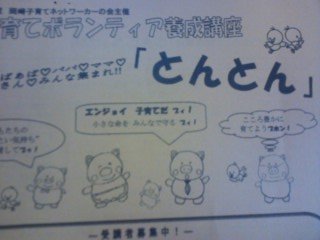 岡崎子育てネットワーカーの会主催
育てボランティア養成講座
ばぁば♡パパ♡ママ♡
さん♡みんな集まれ!!
「とんとん」
エンジョイ 子育てだ ブィ!
小さな命を みんなで守る ブィ!
こころ豊かに
育てよう ブホン!
もたちの
たい気持ち"
―受講者募集中!―